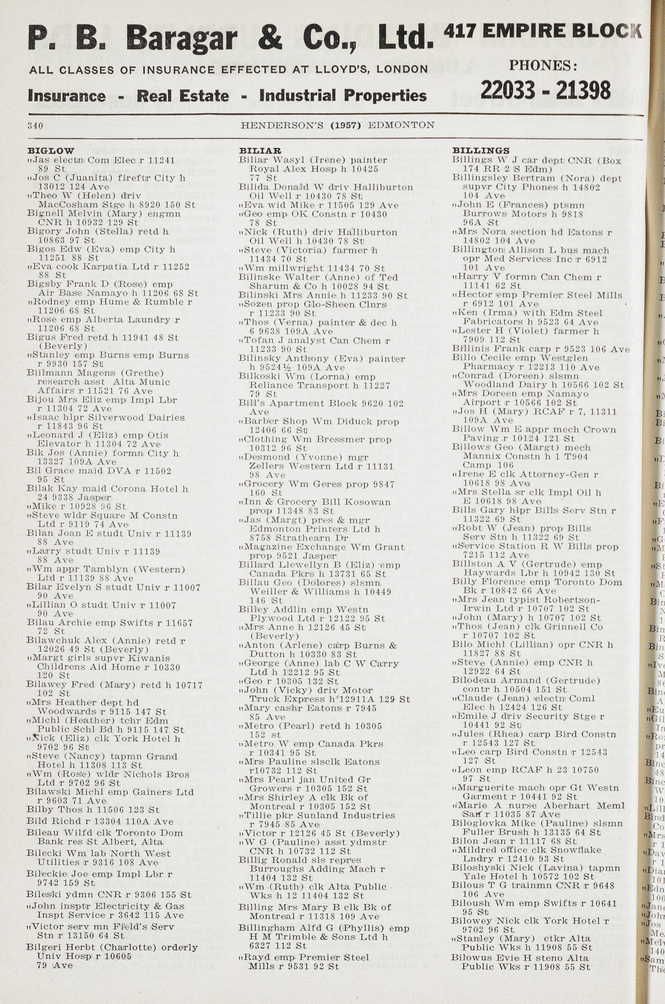 P. B. Baragar & Co., Ltd.
417 EMPIRE BLOCK
ALL CLASSES OF INSURANCE EFFECTED AT LLOYD'S, LONDON
PHONES:
Insurance - Real Estate - Industrial Properties
22033 - 21398
340
HENDERSON'S (1957) EDMONTON
BIGLOW
„Jas electn Com Elec r 11241
89 St
„Jos C (Juanita) fireftr City h
13012 124 Ave
„Theo W (Helen) driv
MacCosham Stge h 8920 150 St
Bignell Melvin (Mary) engmn
CNR h 10932 129 St
Bigory John (Stella) retd h
10863 97 St
Bigos Edw (Eva) emp City h
11251 88 St
„Eva cook Karpatia Ltd r 11252
88 St
Bigsby Frank D (Rose) emp
Air Base Namayo h 11206 68 St
„Rodney emp Hume & Rumble r
11206 68 St
„Rose emp Alberta Laundry r
11206 68 St
Bigus Fred retd h 11941 48 St
(Beverly)
„Stanley emp Burns emp Burns
r 9930 157 St
Biilmann Magens (Grethe)
research asst Alta Munic
Affairs r 11521 76 Ave
Bijou Mrs Eliz emp Impl Lbr
r 11304 72 Ave
„Isaac hlpr Silverwood Dairies
r 11843 96 St
„Leonard J (Eliz) emp Otis
Elevator h 11304 72 Ave
Bik Jos (Annie) formn City h
13327 109A Ave
Bil Grace maid DVA r 11502
95 St
Bilak Kay maid Corona Hotel h
24 9338 Jasper
„Mike r 10928 96 St
„Steve wldr Square M Constn
Ltd r 9119 74 Ave
Bilan Joan E studt Univ r 11139
88 Ave
„Larry studt Univ r 11139
88 Ave
„Wm appr Tamblyn (Western)
Ltd r 11139 88 Ave
Bilar Evelyn S studt Univ r 11007
90 Ave
„Lillian O studt Univ r 11007
90 Ave
Bilau Archie emp Swifts r 11657
72 St
Bilawchuk Alex (Annie) retd r
12026 49 St (Beverly)
„Margt girls supvr Kiwanis
Childrens Aid Home r 10330
120 St
Bilawey Fred (Mary) retd h 10717
102 St
„Mrs Heather dept hd
Woodwards r 9115 147 St
„Michl (Heather) tchr Edm
Public Schl Bd h 9115 147 St
„Nick (Eliz) clk York Hotel h
9702 96 St
„Steve (Nancy) tapmn Grand
Hotel h 11308 113 St
„Wm (Rose) wldr Nichols Bros
Ltd r 9702 96 St
Bilawski Michl emp Gainers Ltd
r 9603 71 Ave
Bilby Thos h 11506 123 St
Bild Richd r 13304 110A Ave
Bileau Wilfd clk Toronto Dom
Bank res St Albert, Alta
Bilecki Wm lab North West
Utilities r 9316 108 Ave
Bileckie Joe emp Impl Lbr r
9742 159 St
Bileski ydmn CNR r 9306 155 St
„John insptr Electricity & Gas
Inspt Service r 3642 115 Ave
„Victor serv mn Field's Serv
Stn r 13150 64 St
Bilgeri Herbt (Charlotte) orderly
Univ Hosp r 10605
79 Ave
BILIAR
Biliar Wasyl (Irene) painter
Royal Alex Hosp h 10425
77 St
Bilida Donald W driv Halliburton
Oil Well r 10430 78 St
„Eva wid Mike r 11505 129 Ave
„Geo emp OK Constn r 10430
78 St
„Nick (Ruth) driv Halliburton
Oil Well h 10430 78 St
„Steve (Victoria) farmer h
11434 70 St
„Wm millwright 11434 70 St
Bilinske Walter (Anne) of Ted
Sharum & Co h 10028 94 St
Bilinski Mrs Annie h 11233 90 St
„Sozen prop Glo-Sheen Clnrs
r 11233 90 St
„Thos (Verna) painter & dec h
6 9638 109A Ave
„Tofan J analyst Can Chem r
11233 90 St
Bilinsky Anthony (Eva) painter
h 9524½ 109A Ave
Bilkoski Wm (Lorna) emp
Reliance Transport h 11227
79 St
Bill's Apartment Block 9620 102
Ave
„Barber Shop Wm Diduck prop
12406 66 St
„Clothing Wm Bressmer prop
10312 96 St
„Desmond (Yvonne) mgr
Zellers Western Ltd r 11131
98 Ave
„Grocery Wm Geres prop 9847
160 St
„Inn & Grocery Bill Kosowan
prop 11348 83 St
„Jas (Margt) pres & mgr
Edmonton Printers Ltd h
8758 Strathearn Dr
„Magazine Exchange Wm Grant
prop 9521 Jasper
Billard Llewellyn B (Eliz) emp
Canada Pkrs h 13731 65 St
Billau Geo (Dolores) slsmn
Weiller & Williams h 10449
146 St
Billey Addlin emp Westn
Plywood Ltd r 12122 95 St
„Mrs Anne h 12126 45 St
(Beverly)
„Anton (Arlene) carp Burns &
Dutton h 10330 83 St
„George (Anne) lab C W Carry
Ltd h 12212 95 St
„Geo r 10305 132 St
„John (Vicky) driv Motor
Truck Express h 12911A 129 St
„Mary cashr Eatons r 7945
85 Ave
„Metro (Pearl) retd h 10305
152 st
„Metro W emp Canada Pkrs
r 10341 95 St
„Mrs Pauline slsclk Eatons
r10732 112 St
„Mrs Pearl jan United Gr
Growers r 10305 152 St
„Mrs Shirley A clk Bk of
Montreal r 10305 152 St
„Tillie pkr Sunland Industries
r 7945 85 Ave
„Victor r 12126 45 St (Beverly)
„W G (Pauline) asst ydmstr
CNR h 10732 112 St
Billig Ronald sls repres
Burroughs Adding Mach r
11404 132 St
„Wm (Ruth) clk Alta Public
Wks h 12 11404 132 St
Billing Mrs Mary B clk Bk of
Montreal r 11318 109 Ave
Billingham Alfd G (Phyllis) emp
H M Trimble & Sons Ltd h
6327 112 St
„Rayd emp Premier Steel
Mills r 9531 92 St
BILLINGS
Billings W J car dept CNR (Box
174 RR 2 S Edm)
Billingsley Bertram (Nora) dept
supvr City Phones h 14802
104 Ave
„John E (Frances) ptsmn
Burrows Motors h 9818
96A St
„Mrs Nora section hd Eatons r
14802 104 Ave
Billington Allison L bus mach
opr Med Services Inc r 6912
101 Ave
„Harry V formn Can Chem r
11141 62 St
„Hector emp Premier Steel Mills
r 6912 101 Ave
„Ken (Irma) with Edm Steel
Fabricators h 9523 64 Ave
„Lester H (Violet) farmer h
7909 112 St
Billinis Frank carp r 9523 106 Ave
Billo Cecile emp Westglen
Pharmacy r 12213 110 Ave
„Conrad (Doreen) slsmn
Woodland Dairy h 10566 102 St
„Mrs Doreen emp Namayo
Airport r 10566 102 St
„Jos H (Mary) RCAF r 7, 11311
109A Ave
Billow Wm E appr mech Crown
Paving r 10124 121 St
Billows Geo (Margt) mech
Mannix Constn h 1 T904
Camp 106
„Irene E clk Attorney-Gen r
10618 98 Ave
„Mrs Stella sr clk Impl Oil h
E 10618 98 Ave
Bills Gary hlpr Bills Serv Stn r
11322 69 St
„Robt W (Jean) prop Bills
Serv Stn h 11322 69 St
„Service Station R W Bills prop
7215 112 Ave
Billston A V (Gertrude) emp
Haywards Lbr h 10942 130 St
Billy Florence emp Toronto Dom
Bk r 10842 66 Ave
„Mrs Jean typist Robertson-
Irwin Ltd r 10707 102 St
„John (Mary) h 10707 102 St
„Thos (Jean) clk Grinnell Co
r 10707 102 St
Bilo Michl (Lillian) opr CNR h
11827 88 St
„Steve (Annie) emp CNR h
12922 64 St
Bilodeau Armand (Gertrude)
contr h 10504 151 St
„Claude (Jean) electn Coml
Elec h 12424 126 St
„Emile J driv Security Stge r
10441 92 St
„Jules (Rhea) carp Bird Constn
r 12543 127 St
„Leo carp Bird Constn r 12543
127 St
„Leon emp RCAF h 23 10750
97 St
„Marguerite mach opr Gt Westn
Garment r 10441 92 St
„Marie A nurse Aberhart Meml
San r 11035 87 Ave
Biloglovka Mike (Pauline) slsmn
Fuller Brush h 13135 64 St
Bilon Jean r 11117 68 St
„Mildred office clk Snowflake
Lndry r 12410 93 St
Biloshyski Nick (Lavina) tapmn
Yale Hotel h 10572 102 St
Bilous T G trainmn CNR r 9648
106 Ave
Biloush Wm emp Swifts r 10641
95 St
Bilowey Nick clk York Hotel r
9702 96 St
„Stanley (Mary) ctkr Alta
Public Wks h 11908 55 St
Bilowus Evie H steno Alta
Public Wks r 11908 55 St